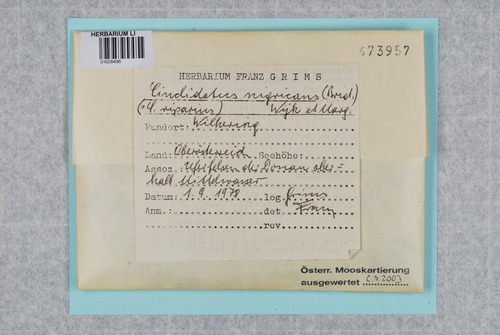 HERBARIUM LI
01608486
673957
HERBARIUM FRANZ GRIMS
Cinclidotus nigricans (Brid.)
(= C. riparius) Wijk et Marg.
Fundort: Wilhering
Land: Oberösterreich Seehöhe:
Assoz. Uferfelsen der Donau ober=
halb Mittelwasser
Datum: 1.9.1978 leg. Grims
Anm.: det. Franz
rev.
Österr. Mooskartierung
ausgewertet